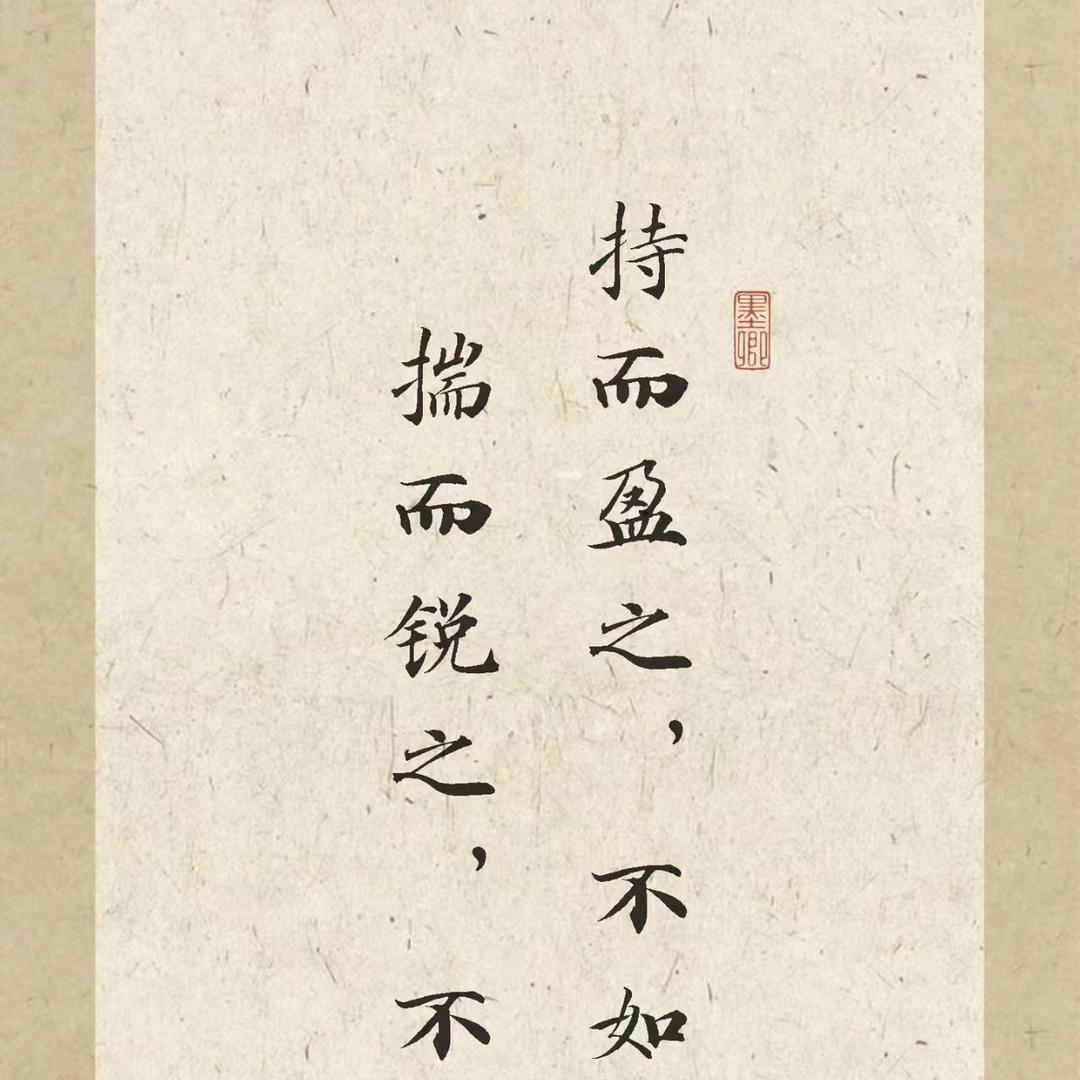 持而盈之，不如
揣而锐之，不
墨卿